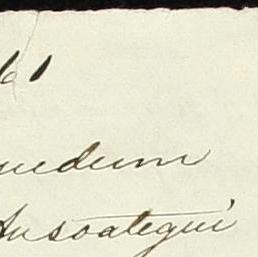 61
uedum
Ansoategui